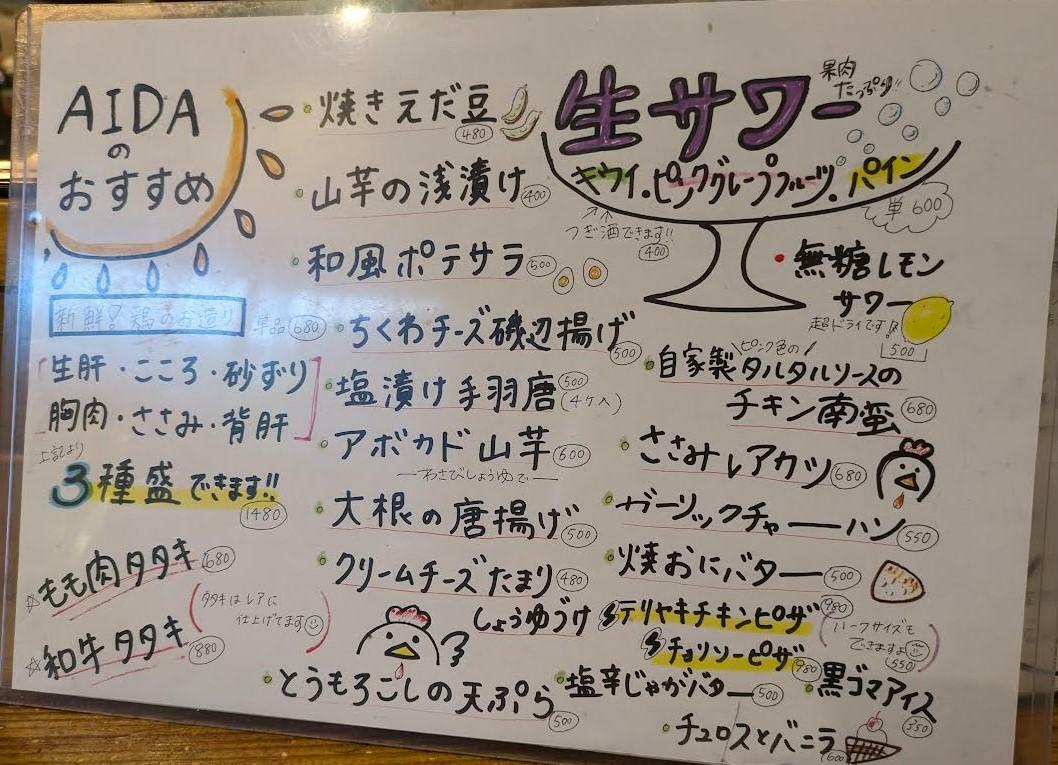 AIDA
の
おすすめ
新鮮!鶏のお造り
単品 680
生肝・こころ・砂ずり
胸肉・ささみ・背肝
上記より
3種盛できます!!
1480
☆もも肉タタキ 680
タタキはレアに
仕上げてます
☆和牛タタキ 880
焼きえだ豆
480
山芋の浅漬け 400
和風ポテサラ 500
ちくわチーズ磯辺揚げ
500
塩漬け手羽唐 500
(4ケ入)
アボカド山芋 600
わさびしょうゆで
大根の唐揚げ 500
クリームチーズたまり 480
しょうゆうけ
とうもろこしの天ぷら
500
生サワー
果肉
たっぷり!!
キウイ・ピンクグレープフルーツ・パイン
単600
つぎ酒できます!!
400
無糖レモン
サワー
超ドライです!!
500
ピンク色の
自家製タルタルソースの
チキン南蛮 680
ささみレアカツ 680
ガーリックチャーハン 550
焼おにバター 500
テリヤキチキンピザ 980
チョリソーピザ 980
ハーフサイズも
できますよ
550
塩辛じゃがバター 500
黒ゴマアイス
350
チュロスとバニラ
600